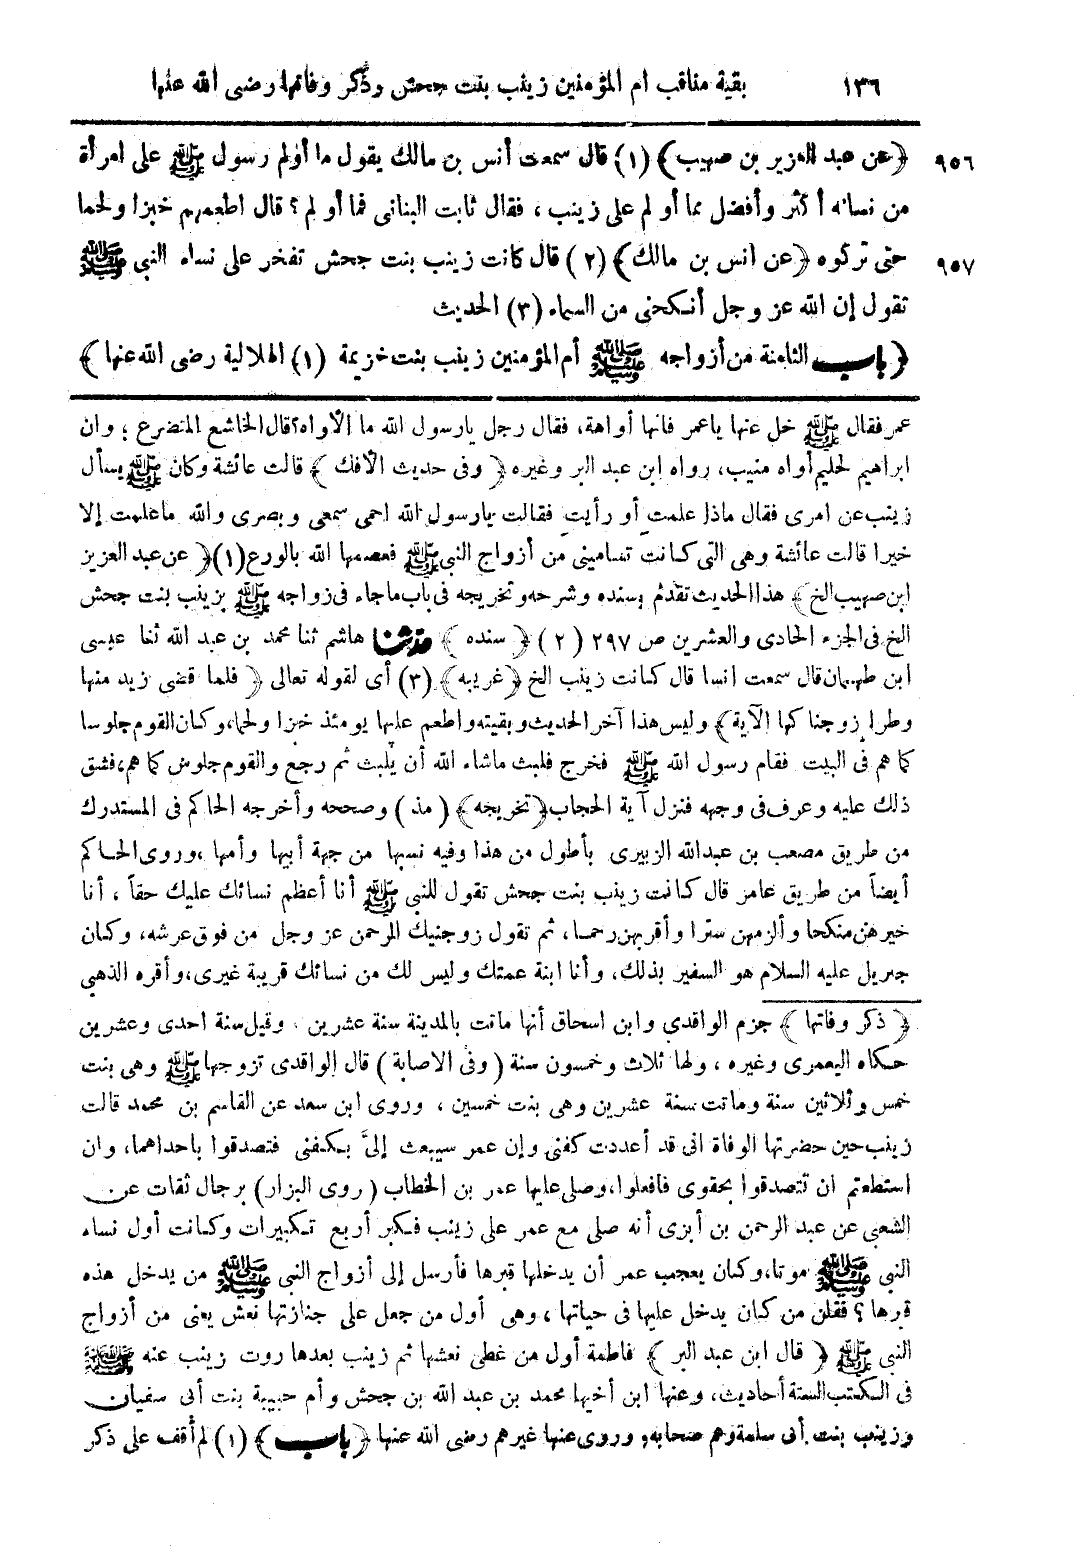 ١٣٦ بقية مناقب أم المؤمنين زينب بنت جحش وذكر وفاتها رضى الله عنها
٩٥٦ ﴿عن عبد العزيز بن صهيب﴾ (١) قال سمعت أنس بن مالك يقول ما أولم رسول ﷺ على امرأة
من نسائه أكثر وأفضل مما أولم على زينب ، فقال ثابت البنانى فما أو لم ؟ قال اطعمهم خبزا ولحما
٩٥٧ حتى تركوه ﴿عن انس بن مالك﴾ (٢) قال كانت زينب بنت جحش تفخر على نساء النبي ﷺ
تقول إن الله عز وجل أنكحنى من السماء (٣) الحديث
﴿باب الثامنة من أزواجه ﷺ أم المؤمنين زينب بنت خزيمة (١) الهلالية رضى الله عنها﴾
عمر فقال ﷺ خل عنها ياعمر فانها أواهة، فقال رجل يارسول الله ما الأواه؟ قال الخاشع المتضرع ؛ وان
ابراهيم لحليم أواه منيب، رواه ابن عبد البر وغيره ﴿وفى حديث الأفك﴾ قالت عائشة وكان ﷺ يسأل
زينب عن امرى فقال ماذا علمت أو رأيت فقالت يارسول الله احمى سمعى وبصرى والله ماعلمت إلا
خيرا قالت عائشة وهى التى كانت تسامينى من أزواج النبي ﷺ فعصمها الله بالورع (١) ﴿عن عبد العزيز
ابن صهيب الخ﴾ هذا الحديث تقدم بسنده وشرحه وتخريجه فى باب ما جاء فى زواجه ﷺ بزينب بنت جحش
الخ فى الجزء الحادى والعشرين ص ٢٩٧ (٢) ﴿سنده﴾ حدثنا هاشم ثنا محمد بن عبد الله ثنا عيسى
ابن طهمان قال سمعت انسا قال كانت زينب الخ ﴿غريبه﴾ (٣) أى لقوله تعالى ﴿فلما قضى زيد منها
وطرا زوجنا كها الآية﴾ وليس هذا آخر الحديث وبقيته واطعم عليها يومئذ خبزا ولحما، وكان القوم جلوسا
كما هم فى البيت فقام رسول الله ﷺ فخرج فلبث ماشاء الله أن يلبث ثم رجع والقوم جلوس كما هم، فشق
ذلك عليه وعرف فى وجهه فنزل آية الحجاب ﴿تخريجه﴾ (مذ) وصححه وأخرجه الحاكم فى المستدرك
من طريق مصعب بن عبدالله الزبيرى بأطول من هذا وفيه نسبها من جهة أبيها وأمها ،وروى الحاكم
أيضاً من طريق عامر قال كانت زينب بنت جحش تقول للنبي ﷺ أنا أعظم نسائك عليك حقاً ، أنا
خيرهن منكحا وألزمهن سترا وأقربهن رحما، ثم تقول زوجنيك الرحمن عز وجل من فوق عرشه، وكان
جبريل عليه السلام هو السفير بذلك، وأنا ابنة عمتك وليس لك من نسائك قريبة غيرى، وأقره الذهبي
﴿ذكر وفاتها﴾ جزم الواقدي وابن اسحاق أنها ماتت بالمدينة سنة عشرين ، وقيل سنة احدى وعشرين
حكاه اليعمرى وغيره ، ولها ثلاث وخمسون سنة (وفى الاصابة) قال الواقدى تزوجها ﷺ وهى بنت
خمس وثلاثين سنة وماتت سنة عشرين وهى بنت خمسين ، وروى ابن سعد عن القاسم بن محمد قالت
زينب حين حضرتها الوفاة انى قد أعددت كفنى وإن عمر سيبعث إلىَّ بكفنى فتصدقوا باحداهما، وان
استطعتم ان تتصدقوا بحقوى فافعلوا، وصلى عليها عمر بن الخطاب (روى البزار) برجال ثقات عن
الشعبي عن عبد الرحمن بن أبزى أنه صلى مع عمر على زينب فكبر أربع تكبيرات وكانت أول نساء
النبي ﷺ موتا، وكان يعجب عمر أن يدخلها قبرها فأرسل إلى أزواج النبي ﷺ من يدخل هذه
قبرها ؟ فقلن من كان يدخل عليها فى حياتها ، وهى أول من جعل على جنازتها نعش يعنى من أزواج
النبي ﷺ ﴿قال ابن عبد البر﴾ فاطمة أول من غطى نعشها ثم زينب بعدها روت زينب عنه ﷺ
فى الكتب الستة أحاديث، وعنها ابن أخيها محمد بن عبد الله بن جحش وأم حبيبة بنت أبى سفيان
وزينب بنت أبى سلمة وهم صحابه، وروى عنها غيرهم رضى الله عنها ﴿باب﴾ (١) لم أقف على ذكر